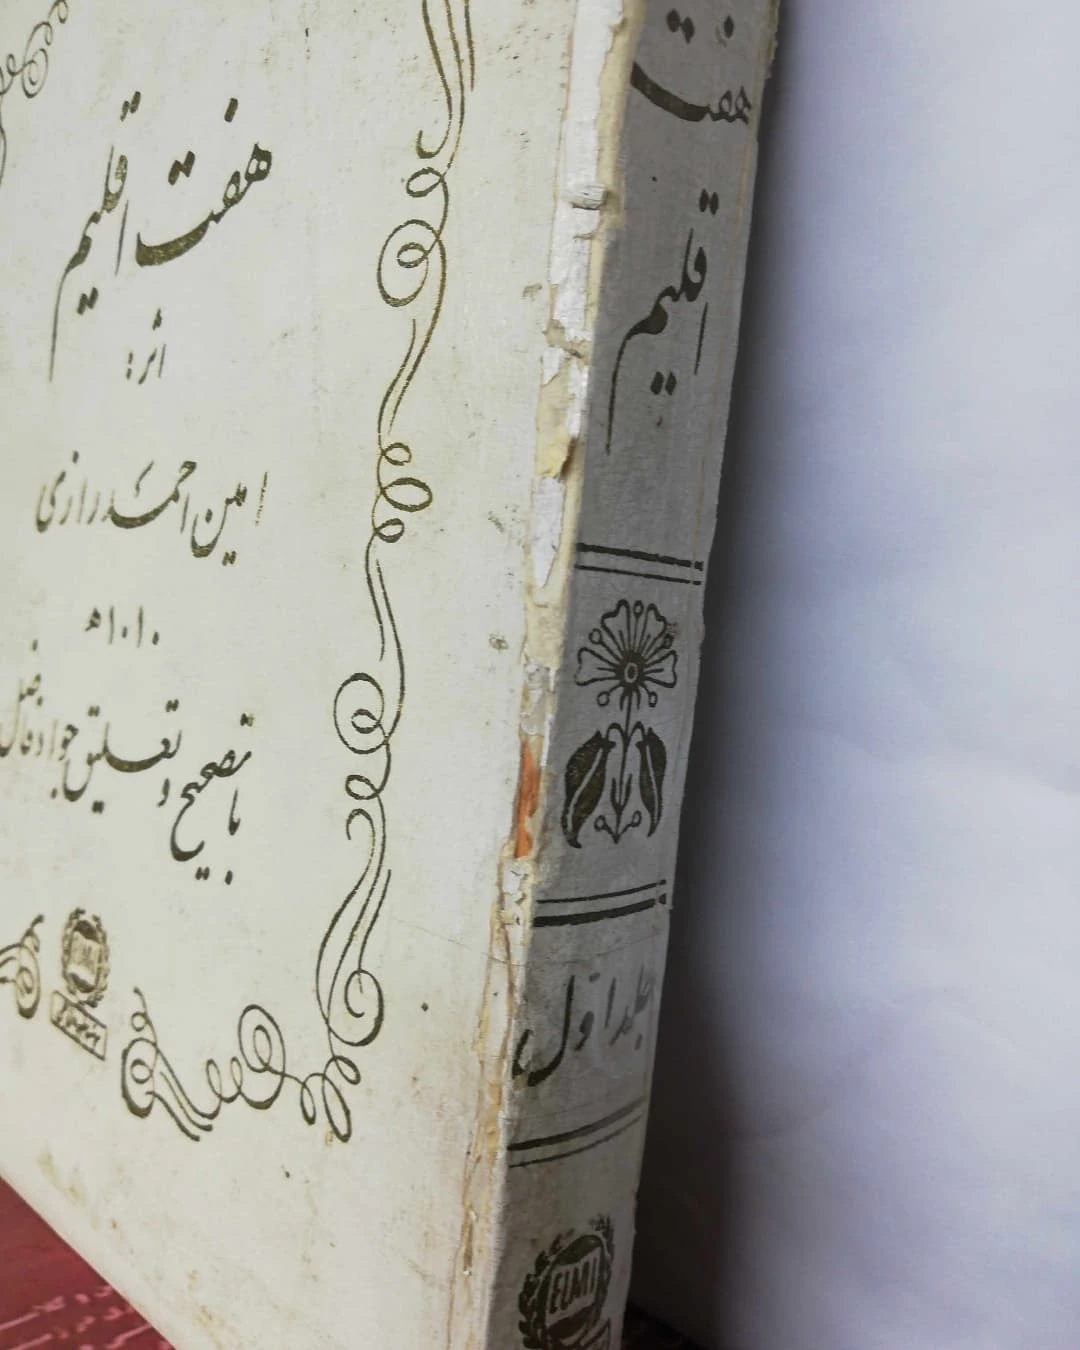 هفت اقلیم
اثر:
امین احمد رازی
۱۰۱۰ه
با تصحیح و تعلیق جواد فاضل
هفت
اقلیم
جلد اول
ELMI